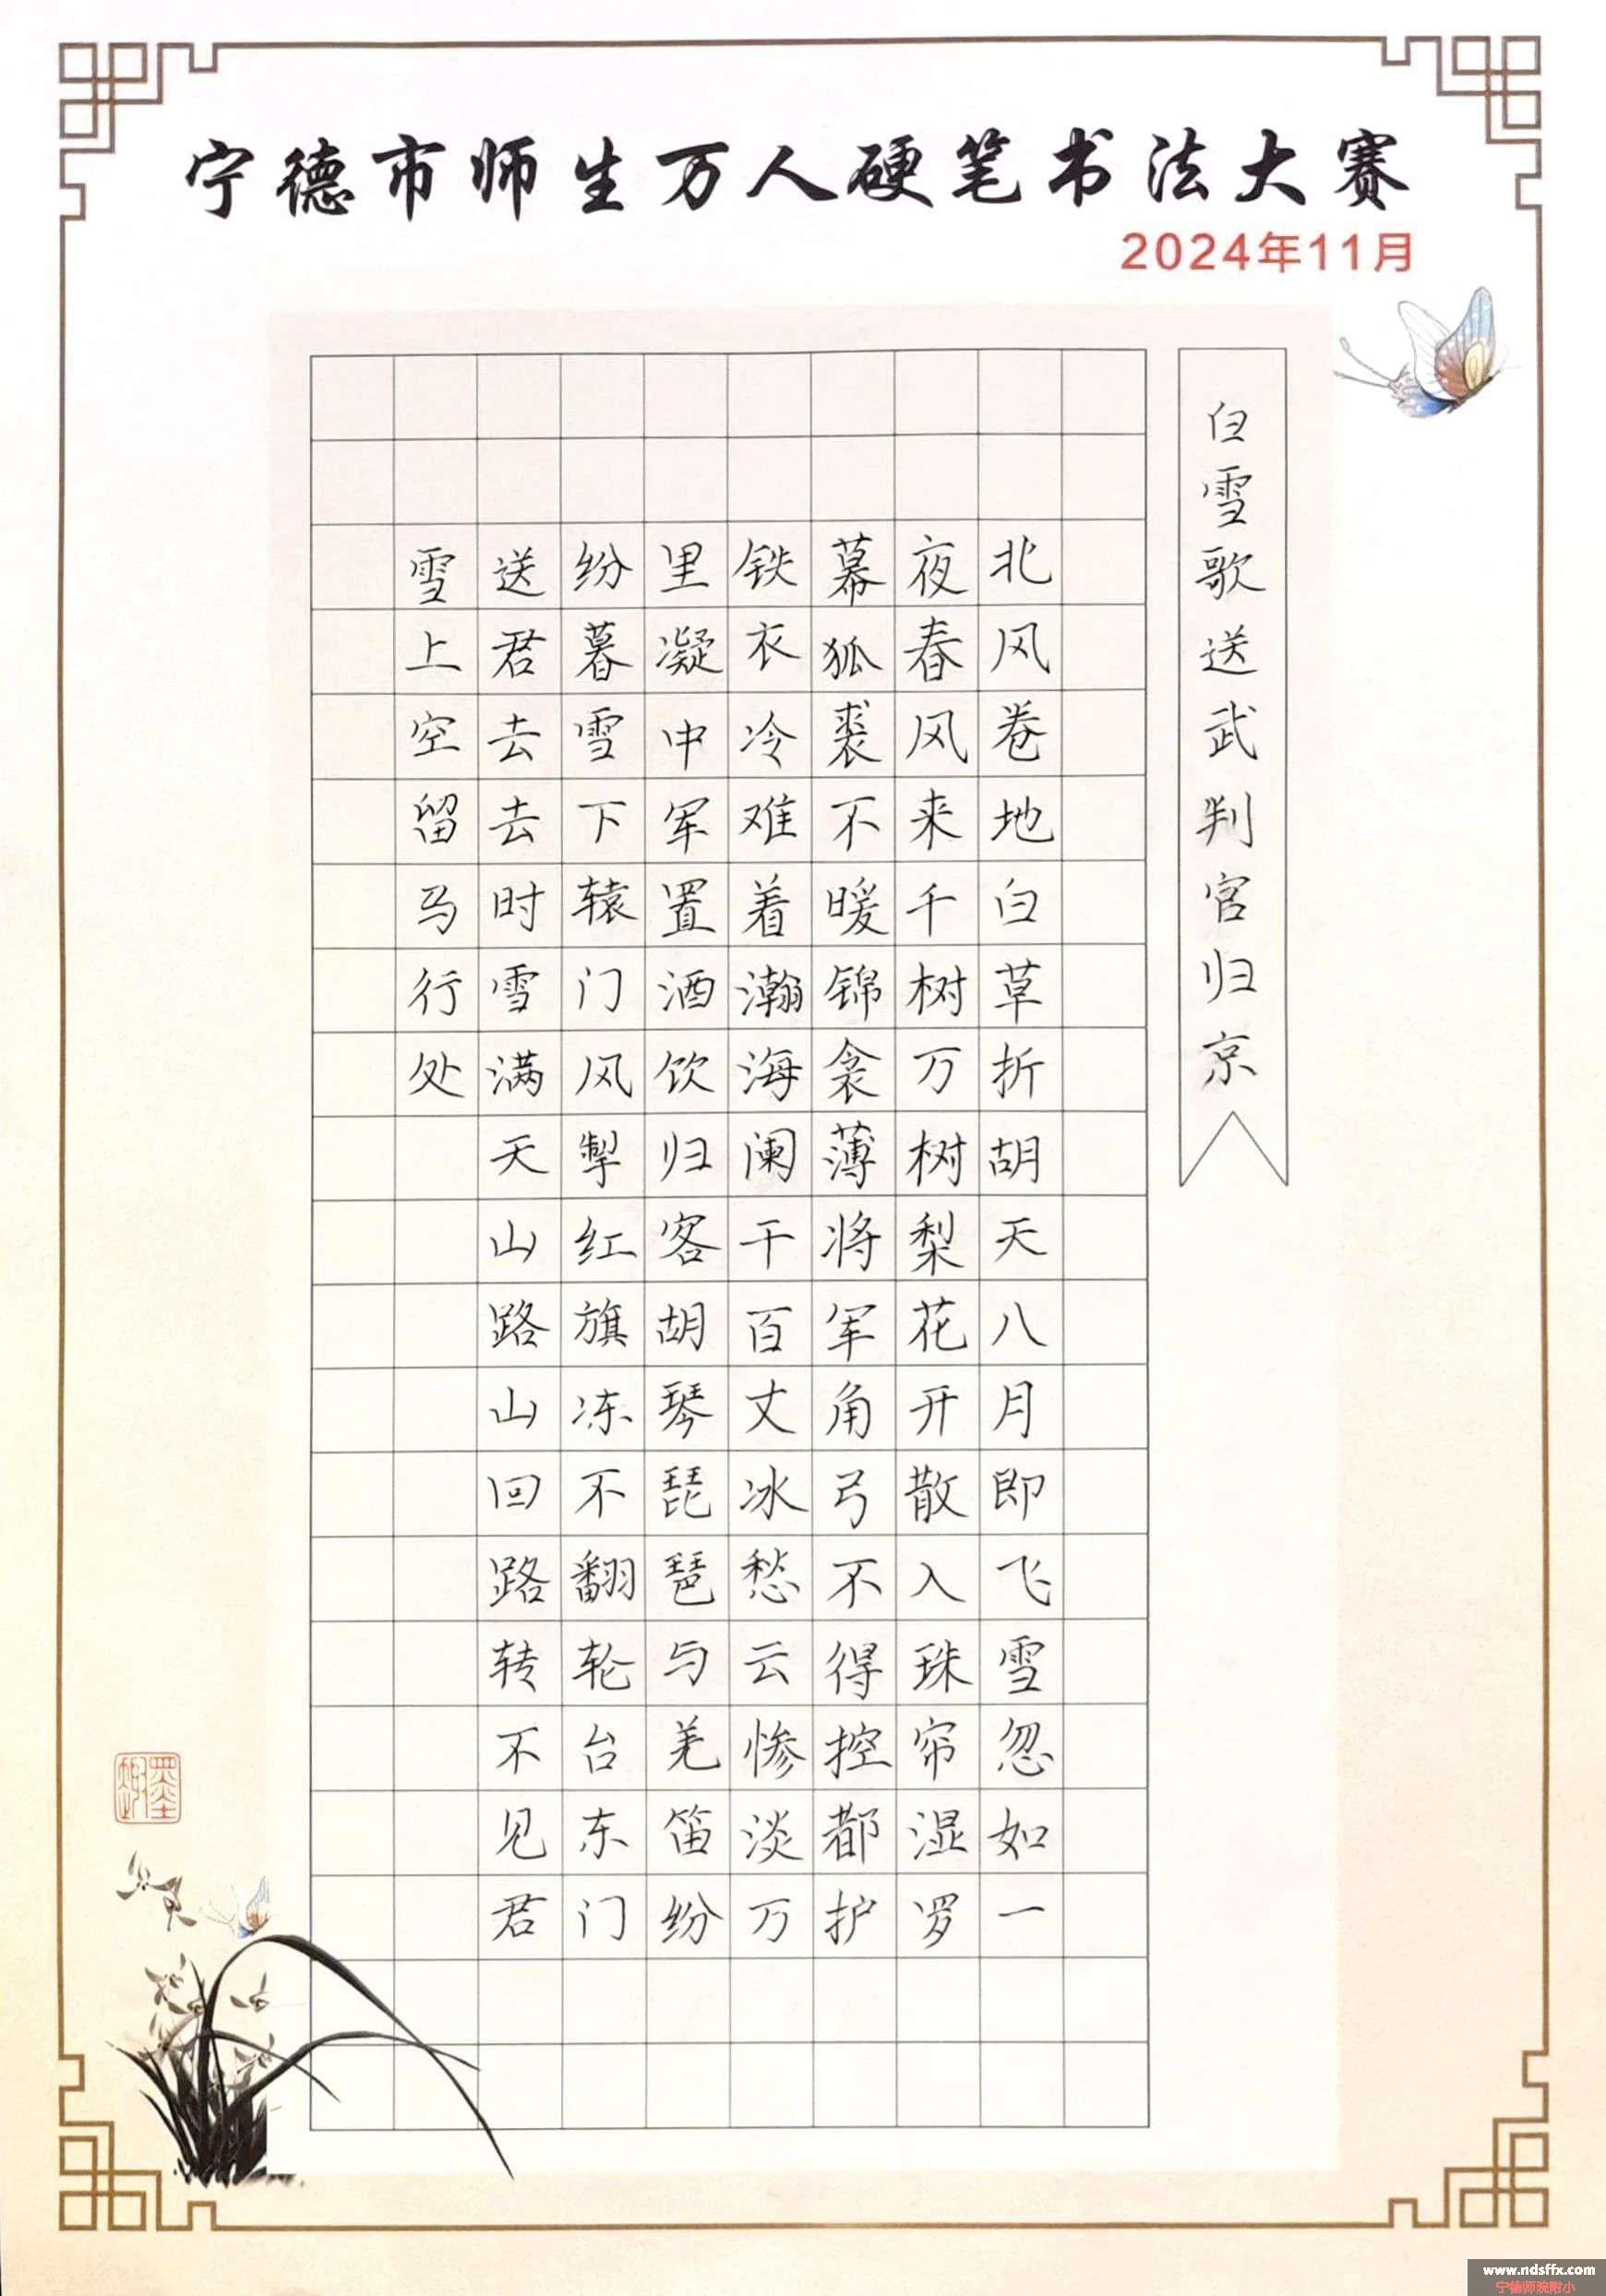 宁德市师生万人硬笔书法大赛
2024年11月
白雪歌送武判官归京
北风卷地白草折胡天八月即飞雪忽如一
夜春风来千树万树梨花开散入珠帘湿罗
幕狐裘不暖锦衾薄将军角弓不得控都护
铁衣冷难着瀚海阑干百丈冰愁云惨淡万
里凝中军置酒饮归客胡琴琵琶与羌笛纷
纷暮雪下辕门风掣红旗冻不翻轮台东门
送君去去时雪满天山路山回路转不见君
雪上空留马行处
www.ndsffx.com
宁德师院附小